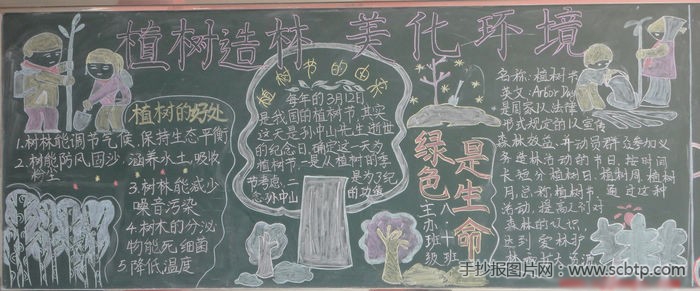 植树造林 美化环境
植树的好处
1.树林能调节气候,保持生态平衡
2.树能防风固沙,涵养水土,吸收
粉尘
3.树林能减少
噪音污染
4.树木的分泌
物能死细菌
5.降低温度
植树节的由来
每年的3月12日
是我国的植树节,其实
这天是孙中山先生逝世
的纪念日,确定这一天为
植树节,一是从植树的季
节考虑,二是为了纪
念孙中山的功绩
绿色
是生命
主办班级
八·一班
名称:植树节
英文:Arbor Day
是国家以法律
形式规定的以宣传
森林效益,并动员群众参加义
务造林活动的节日,按时间
长短分植树日、植树周、植树
月,总称植树节,通过这种
活动,提高人们对
森林的认识,
达到爱林护
手抄报图片网:www.scbtp.com